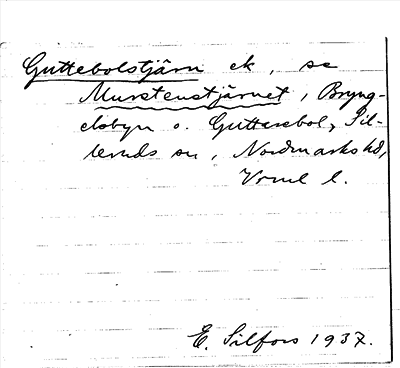 Guttebolstjärn ek, se
Murstenstjärnet, Bryng-
elsbyn o. Guttersbol, Sil-
leruds sn, Nordmarks hd,
Vrml l.
E. Silfors 1937.